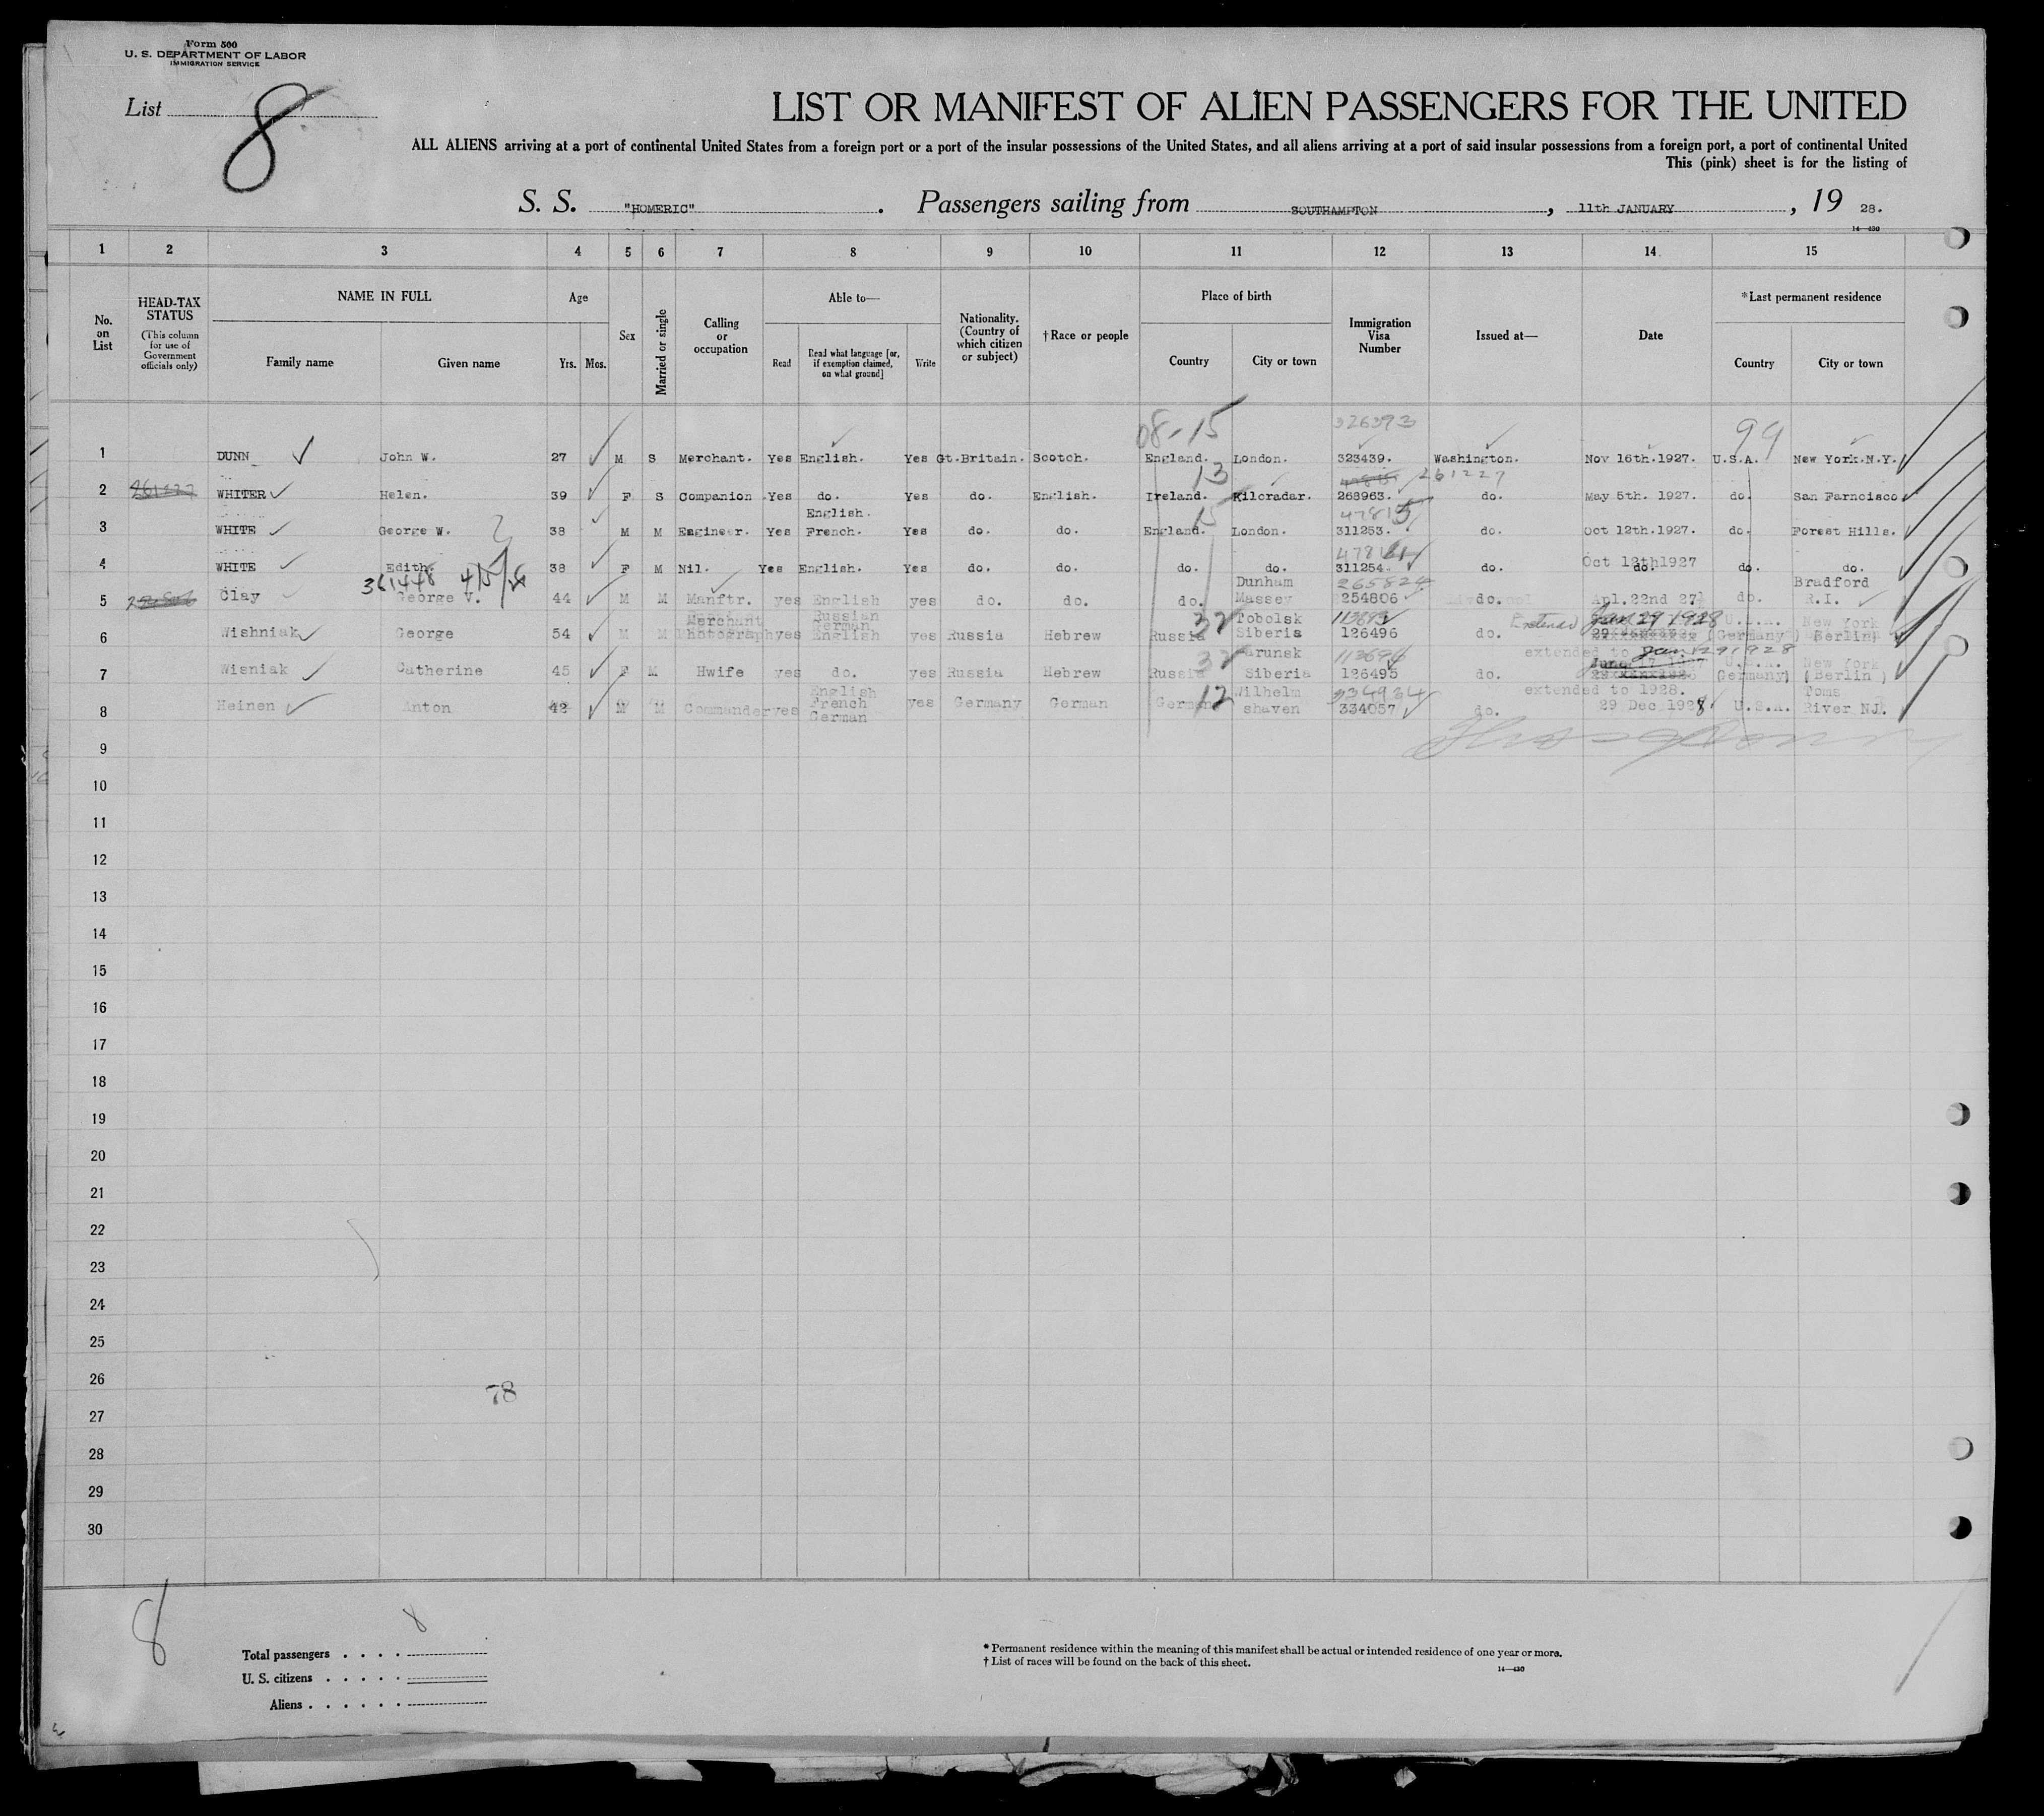 Form 500
U. S. DEPARTMENT OF LABOR
IMMIGRATION SERVICE
List 8
LIST OR MANIFEST OF ALIEN PASSENGERS FOR THE UNITED
ALL ALIENS arriving at a port of continental United States from a foreign port or a port of the insular possessions of the United States, and all aliens arriving at a port of said insular possessions from a foreign port, a port of continental United
This (pink) sheet is for the listing of
S. S. "HOMERIC". Passengers sailing from SOUTHAMPTON, 11th JANUARY, 19 28.
14—430
1 2 3 4 5 6 7 8 9 10 11 12 13 14 15
No. on List
HEAD-TAX STATUS (This column for use of Government officials only)
NAME IN FULL
Family name Given name
Age
Yrs. Mos.
Sex
Married or single
Calling or occupation
Able to—
Read Read what language [or, if exemption claimed, on what ground] Write
Nationality. (Country of which citizen or subject)
†Race or people
Place of birth
Country City or town
Immigration Visa Number
Issued at—
Date
*Last permanent residence
Country City or town
08-15 326393 99
1 DUNN John W. 27 M S Merchant. Yes English. Yes Gt.Britain. Scotch. England. London. 323439. Washington. Nov 16th.1927. U.S.A. New York.N.Y.
13 261227
2 261227 WHITER Helen. 39 F S Companion Yes do. Yes do. English. Ireland. Kilcradar. 268963. do. May 5th. 1927. do. San Farncisco
English. 15 47815
3 WHITE George W. 38 M M Engineer. Yes French. Yes do. do. England. London. 311253. do. Oct 12th.1927. do. Forest Hills.
Oct 12th1927
4 WHITE Edith. 38 F M Nil. Yes English. Yes do. do. do. do. 311254. do. do. do. do.
361448 Dunham 265824 Bradford
5 Clay George V. 44 M M Manftr. yes English yes do. do. do. Massey 254806 do. Apl.22nd 27 do. R.I.
Merchant Russian German 32 Tobolsk 113693 Extended Jan 29 1928 U.S.A. New York
6 Wishniak George 54 M M Photograph yes English yes Russia Hebrew Russia Siberia 126496 do. 29 (Germany) (Berlin)
32 113694 extended to Jan. 29 1928
June 17 U.S.A. New York
7 Wisniak Catherine 45 F M Hwife yes do. yes Russia Hebrew Russia Siberia 126495 do. (Germany) (Berlin)
English French 12 Wilhelm 334934 extended to 1928. Toms
8 Heinen Anton 42 M M Commander yes German yes Germany German German shaven 334057 do. 29 Dec 1928 U.S.A. River NJ.
9
10
11
12
13
14
15
16
17
18
19
20
21
22
23
24
25
26
78
27
28
29
30
8
Total passengers . . . . 8
U. S. citizens . . . . .
Aliens . . . . . .
* Permanent residence within the meaning of this manifest shall be actual or intended residence of one year or more.
† List of races will be found on the back of this sheet.
14—430